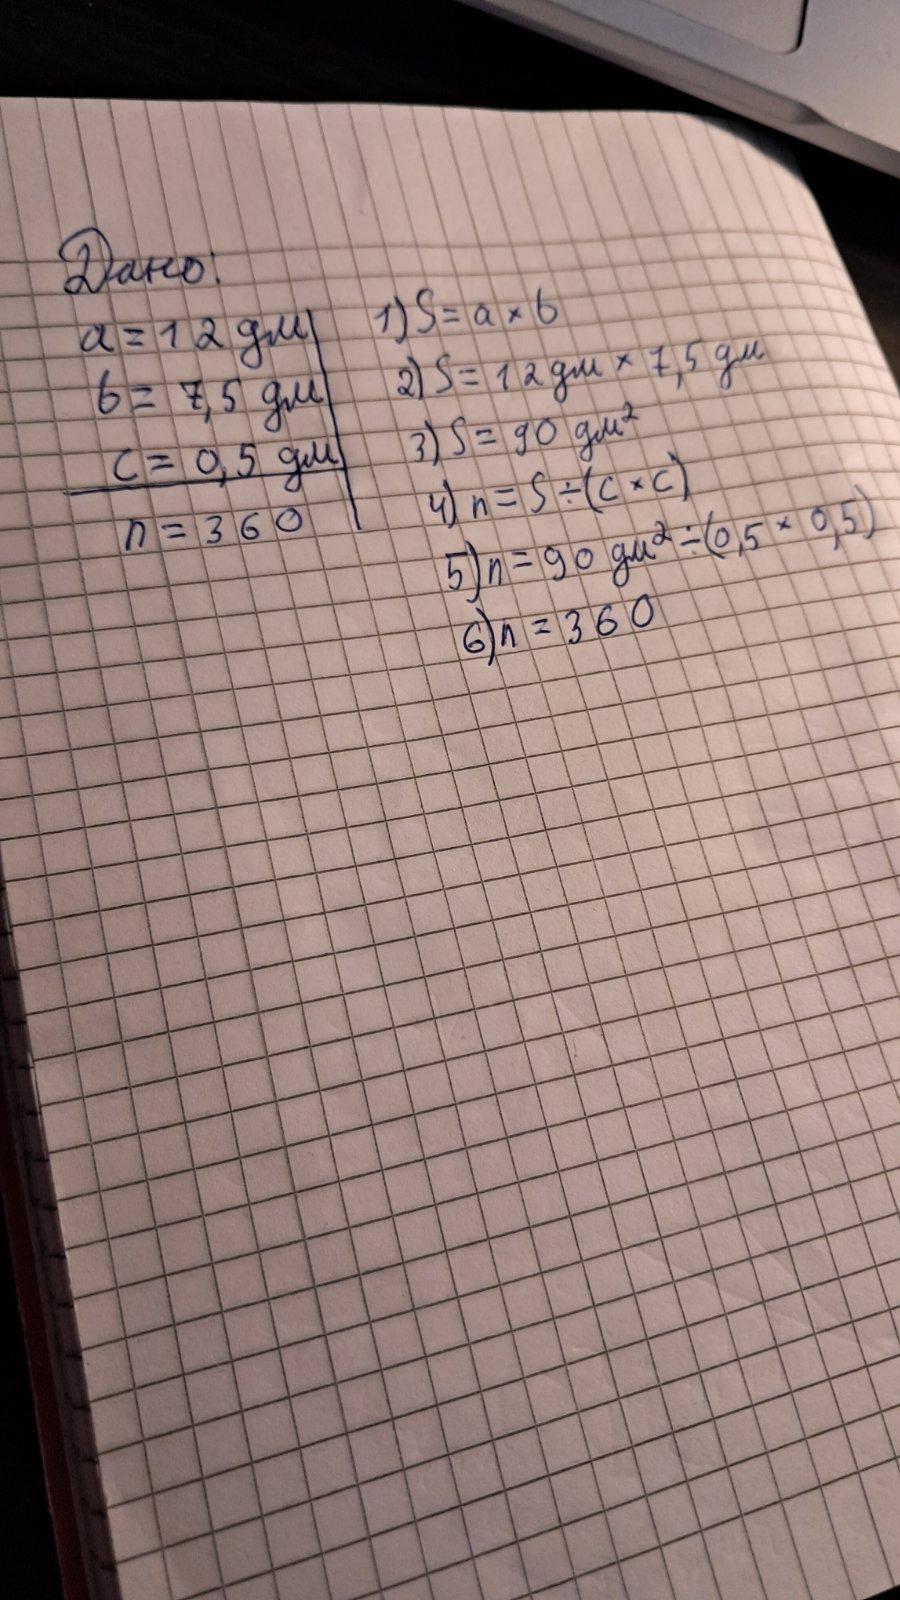 Дано:
a = 12 дм
b = 7,5 дм
c = 0,5 дм
n = 360
1) S = a × b
2) S = 12 дм × 7,5 дм
3) S = 90 дм²
4) n = S ÷ (c × c)
5) n = 90 дм² ÷ (0,5 × 0,5)
6) n = 360